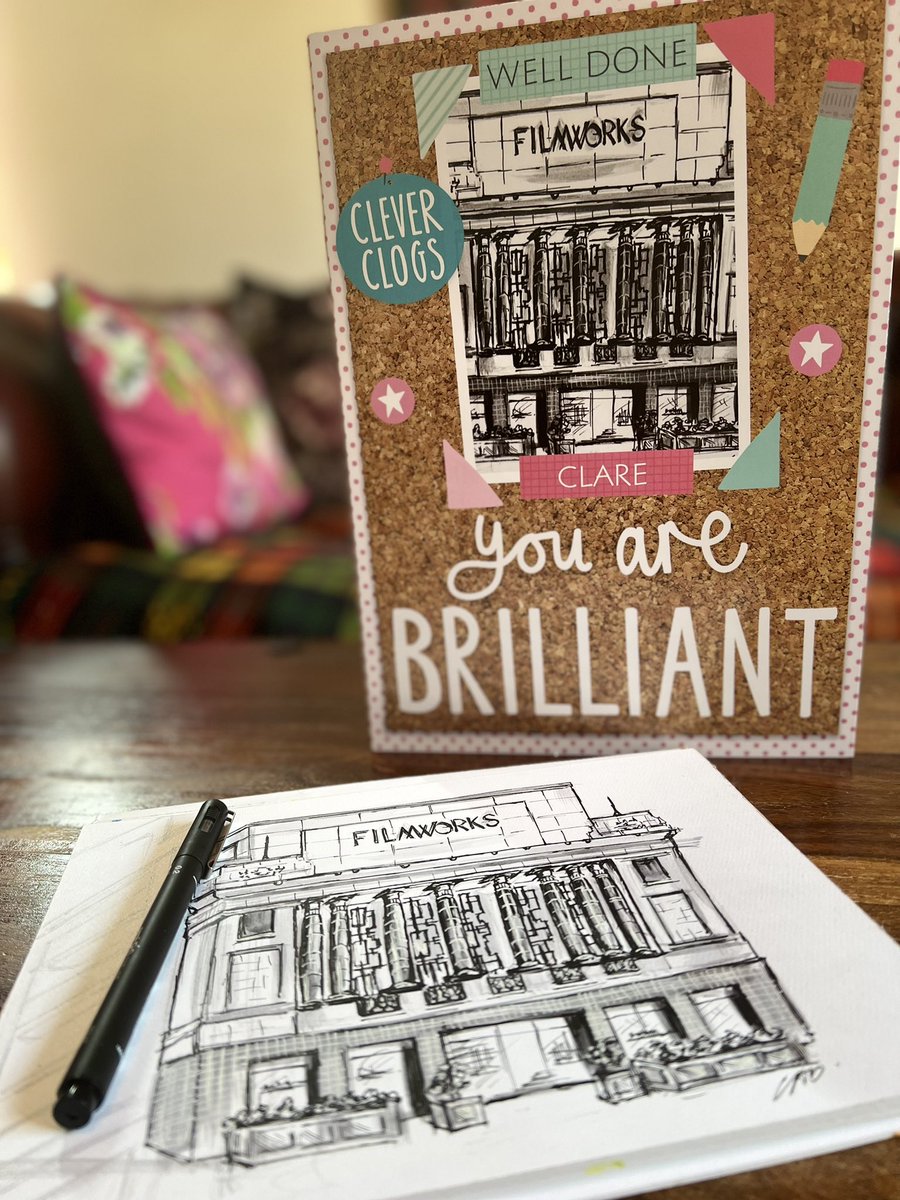 WELL DONE
FILMWORKS
CLEVER
CLOGS
CLARE
you are
BRILLIANT
FILMWORKS